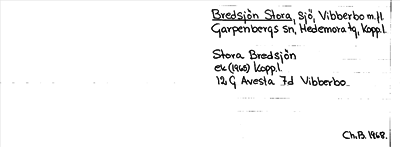 Bredsjön Stora, sjö, Vibberbo m.fl.
Garpenbergs sn, Hedemora tg, Kopp.l.
Stora Bredsjön
ek (1965) Kopp.l.
12 G Avesta 7d Vibberbo
Ch.B. 1968.